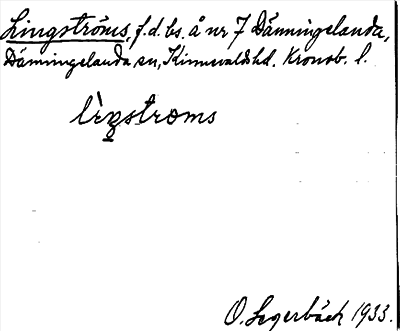 Lingströms, f.d. bs. å nr 7 Dänningelanda,
Dänningelanda sn, Kinnevaldshd. Kronob. l.
lìŋstroms
O. Legerbäck 1933.